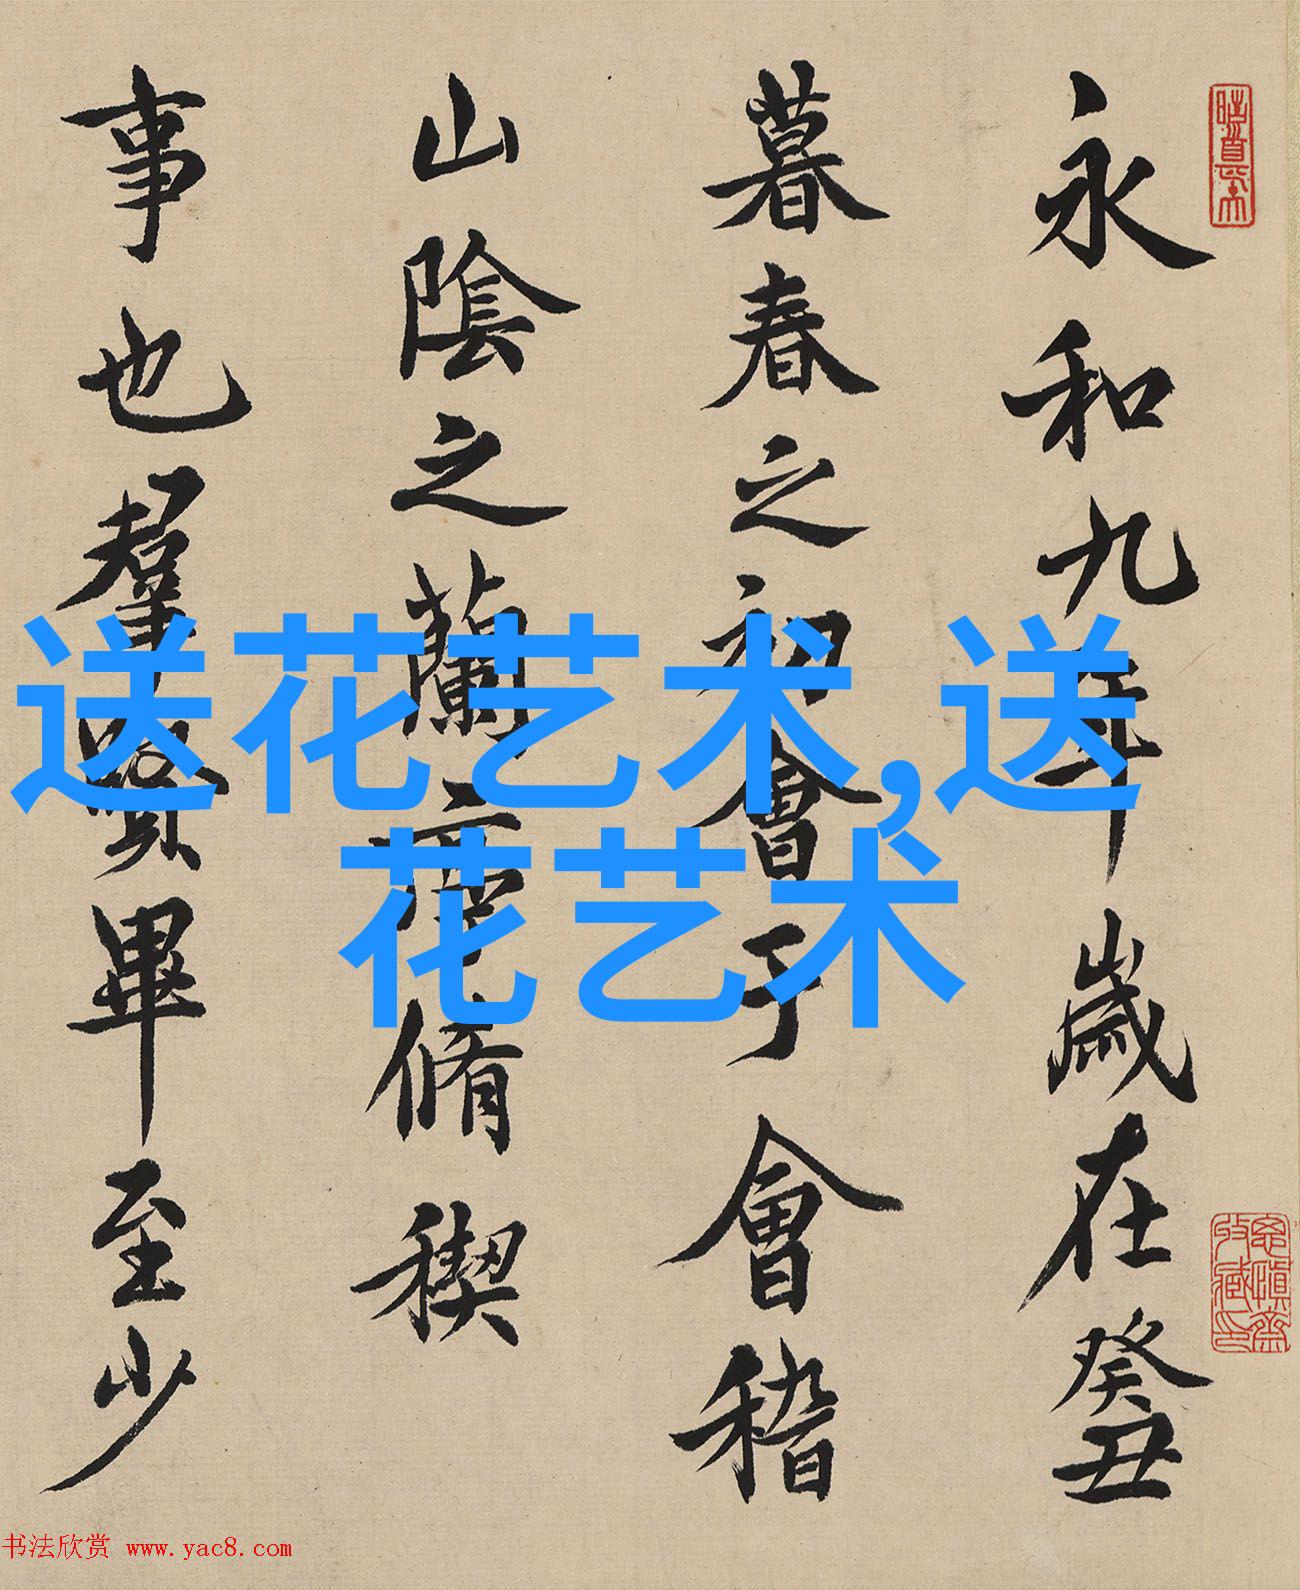 永和九年歲在癸丑
暮春之初會于會稽
山陰之蘭亭脩稧
事也羣賢畢至少
送花艺术,送
花艺术
书法欣赏 www.yac8.com